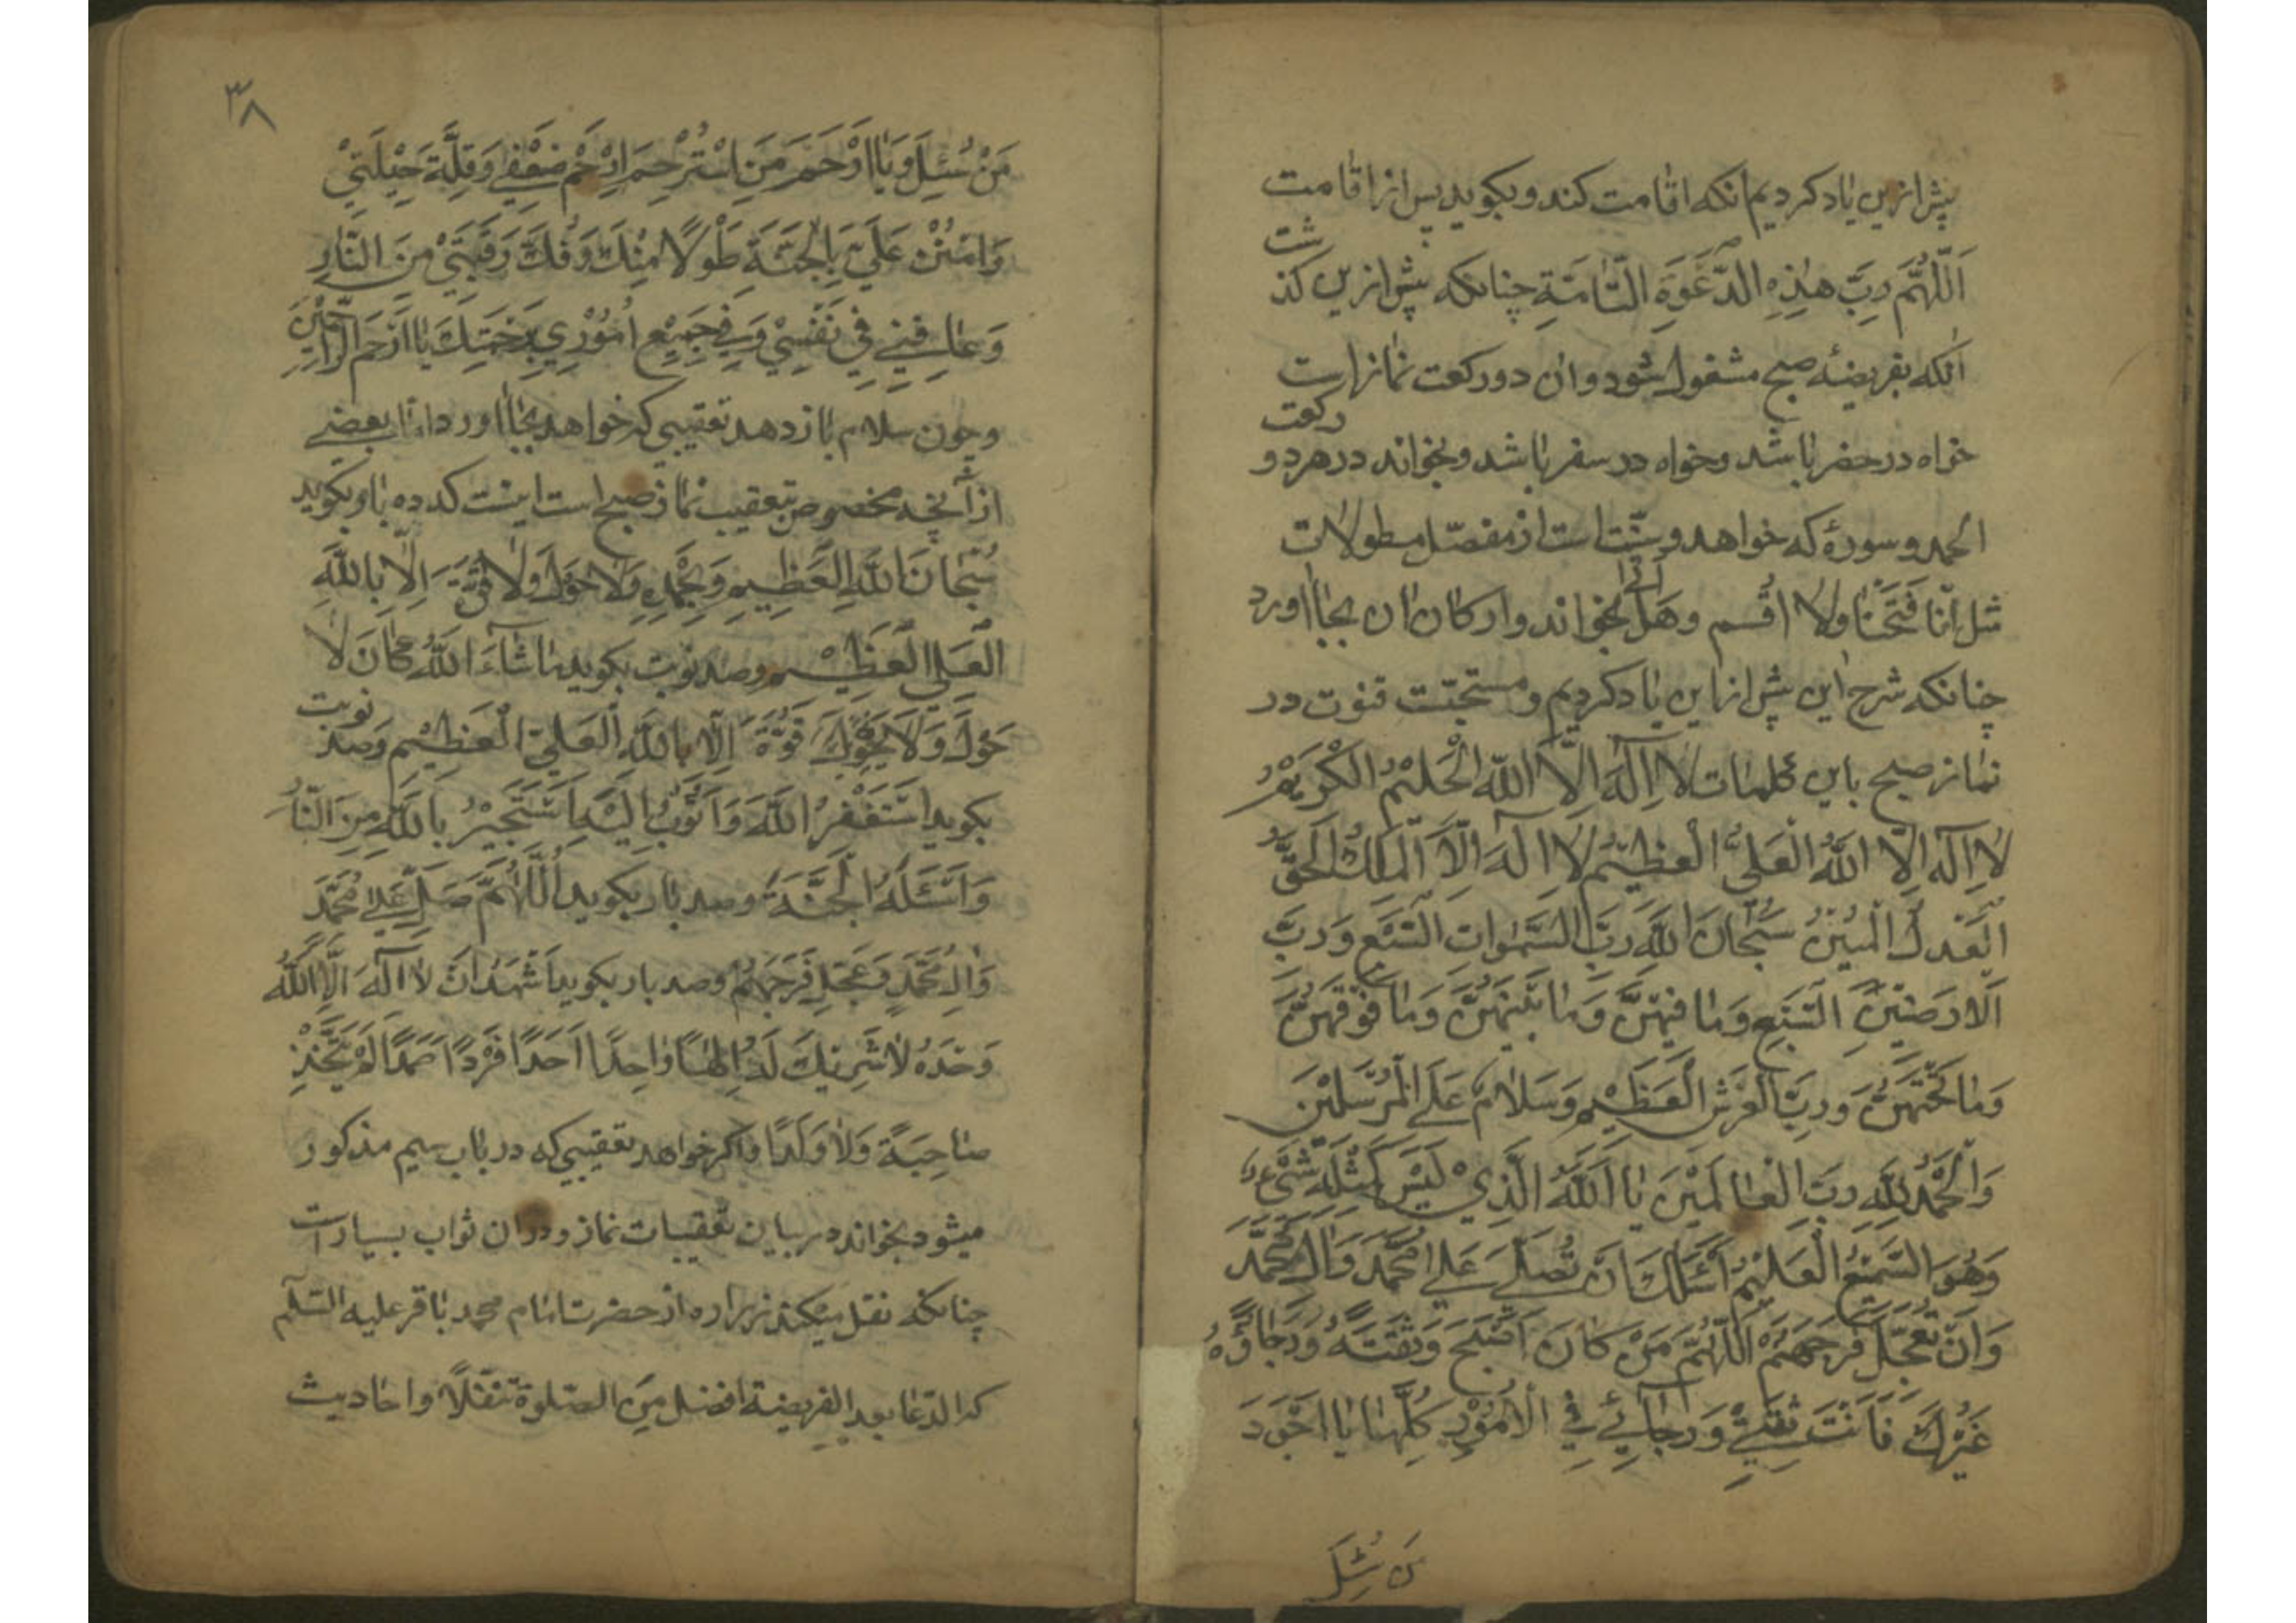 پیش ازین یاد کردیم آنکه اقامت کند و بکوید پس از اقامت
اَللّٰهُمَّ رَبَّ هٰذِهِ الدَّعْوَةِ التّٰامَّةِ چنانکه پیش ازین کذشت
آنکه بفریضهٔ صبح مشغول شود و ان دو رکعت نمازاست
خواه در حضر باشد و خواه در سفر باشد و بخواند در هر دو رکعت
الحمد و سورهٔ که خواهد و سنّت است از مفصّل مطولات
مثل انّا فَتَحْنٰا ولا اُقسم وهَل اَتٰی بخواند و ارکان ان بجاا ورد
چنانکه شرح این پیش ازاین یاد کردیم و مستحبّت قنوت در
نماز صبح باین کلمات لا اِلٰهَ اِلَّا اللّٰه الْحَلیْمُ الْکَرِیْمُ
لا اِلٰهَ اِلَّا اللّٰهُ الْعَلیُّ الْعَظیْمُ لا اِلٰهَ اِلَّا الْمَلِکُ الْحَقُّ
الْعَدْلُ الْمُبیْنُ سُبْحٰانَ اللّٰهِ رَبِّ السَّمٰوٰاتِ السَّبْعِ وَرَبِّ
الْاَرَضیْنَ السَّبْعِ وَمٰا فیْهِنَّ وَمٰا بَیْنَهُنَّ وَمٰا فَوْقَهُنَّ
وَمٰا تَحْتَهُنَّ وَرَبِّ الْعَرْشِ الْعَظیْمِ وَسَلٰامٌ عَلَی الْمُرْسَلیْنَ
وَالْحَمْدُ لِلّٰهِ رَبِّ الْعٰالَمیْنَ یٰا اَللّٰهُ الَّذِیْ لَیْسَ کَمِثْلِهِ شَیْءٌ
وَهُوَ السَّمیْعُ الْعَلیْمُ اَسْئَلُکَ اَنْ تُصَلِّیَ عَلٰی مُحَمَّدٍ وَاٰلِ مُحَمَّدٍ
وَاَنْ تُعَجِّلَ فَرَجَهُمْ اَللّٰهُمَّ مَنْ کٰانَ اَصْبَحَ وَثِقَتُهُ وَرَجٰاؤُهُ
غَیْرُکَ فَاَنْتَ ثِقَتیْ وَرَجٰائیْ فِی الْاُمُوْرِ کُلِّهٰا یٰا اَجْوَدَ
مَن سُئِلَ
٣٨
مَنْ سُئِلَ وَیٰا اَرْحَمَ مَنِ اسْتُرْحِمَ اِرْحَمْ ضَعْفیْ وَقِلَّةَ حِیْلَتیْ
وَامْنُنْ عَلَیَّ بِالْجَنَّةِ طَوْلًا مِنْکَ وَفُکَّ رَقَبَتیْ مِنَ النّٰارِ
وَعٰافِنیْ فیْ نَفْسیْ وَفیْ جَمیْعِ اُمُوْرِیْ بِرَحْمَتِکَ یٰا اَرْحَمَ الرّٰاحِمیْنَ
و چون سلام باز دهد تعقیبی که خواهد بجاا ورد امّا بعضی
از آنچه مخصوص بتعقیب نماز صبح است اینست که ده بار بکوید
سُبْحٰانَ اللّٰهِ الْعَظِیْمِ وَبِحَمْدِهِ وَلٰا حَوْلَ وَلٰا قُوَّةَ اِلّٰا بِاللّٰهِ
الْعَلِیِّ الْعَظِیْمِ و صد نوبت بکوید مٰا شٰاءَ اللّٰهُ کٰانَ لٰا
حَوْلَ وَلَا قُوَّةَ اِلّٰا بِاللّٰهِ الْعَلِیِّ الْعَظیْمِ وصد نوبت
بکوید اَسْتَغْفِرُ اللّٰهَ وَاَتُوْبُ اِلَیْهِ اَسْتَجیْرُ بِاللّٰهِ مِنَ النّٰارِ
وَاَسْئَلُهُ الْجَنَّةَ وصد بار بکوید اَللّٰهُمَّ صَلِّ عَلٰی مُحَمَّدٍ
وَاٰلِ مُحَمَّدٍ وَعَجِّلْ فَرَجَهُمْ وصد بار بکوید اَشْهَدُ اَنْ لٰا اِلٰهَ اِلَّا اللّٰهُ
وَحْدَهُ لٰا شَرِیْکَ لَهُ اِلٰهًا وٰاحِدًا اَحَدًا فَرْدًا صَمَدًا لَمْ یَتَّخِذْ
صٰاحِبَةً وَلٰا وَلَدًا و اکر خواهد تعقیبی که در باب سیم مذکور
میشود بخواند در بیان تعقیبات نماز و در ان ثواب بسیاراست
چنانکه نقل میکند زراره از حضرت امام محمد باقر علیه السّلام
که الدّعا بعد الفریضة افضل مِنَ الصّلوة تنفّلًا و احادیث